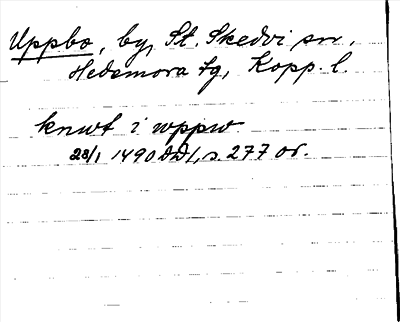 Uppbo, by, St. Skedvi sn,
Hedemora tg, Kopp. l.
knwt i wppw
28/1 1490 DD1, s. 277 or.